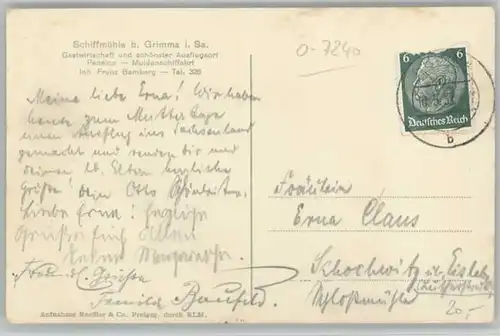 Schiffmühle b. Grimma i. Sa.
Gastwirtschaft und schönster Ausflugsort
Pension — Muldenschiffahrt
Inh. Franz Bamberg — Tel. 326
O-7240
6
6
Deutsches Reich
b
Meine liebe Erna! Wir haben
heute zum Muttertage
einen Ausflug ins Sachsenland
gemacht und senden Dir und
deinen lb. Eltern herzliche
Grüße! Dein Otto
Liebe Erna! Herzliche
Grüße Euch Allen
Freundl. Grüße
Familie
Fräulein
Erna Claus
Schochwitz üb. Eisleben
Schloßmühle
20,-
Aufnahme Naefler & Co. Preisgn. durch RLM.